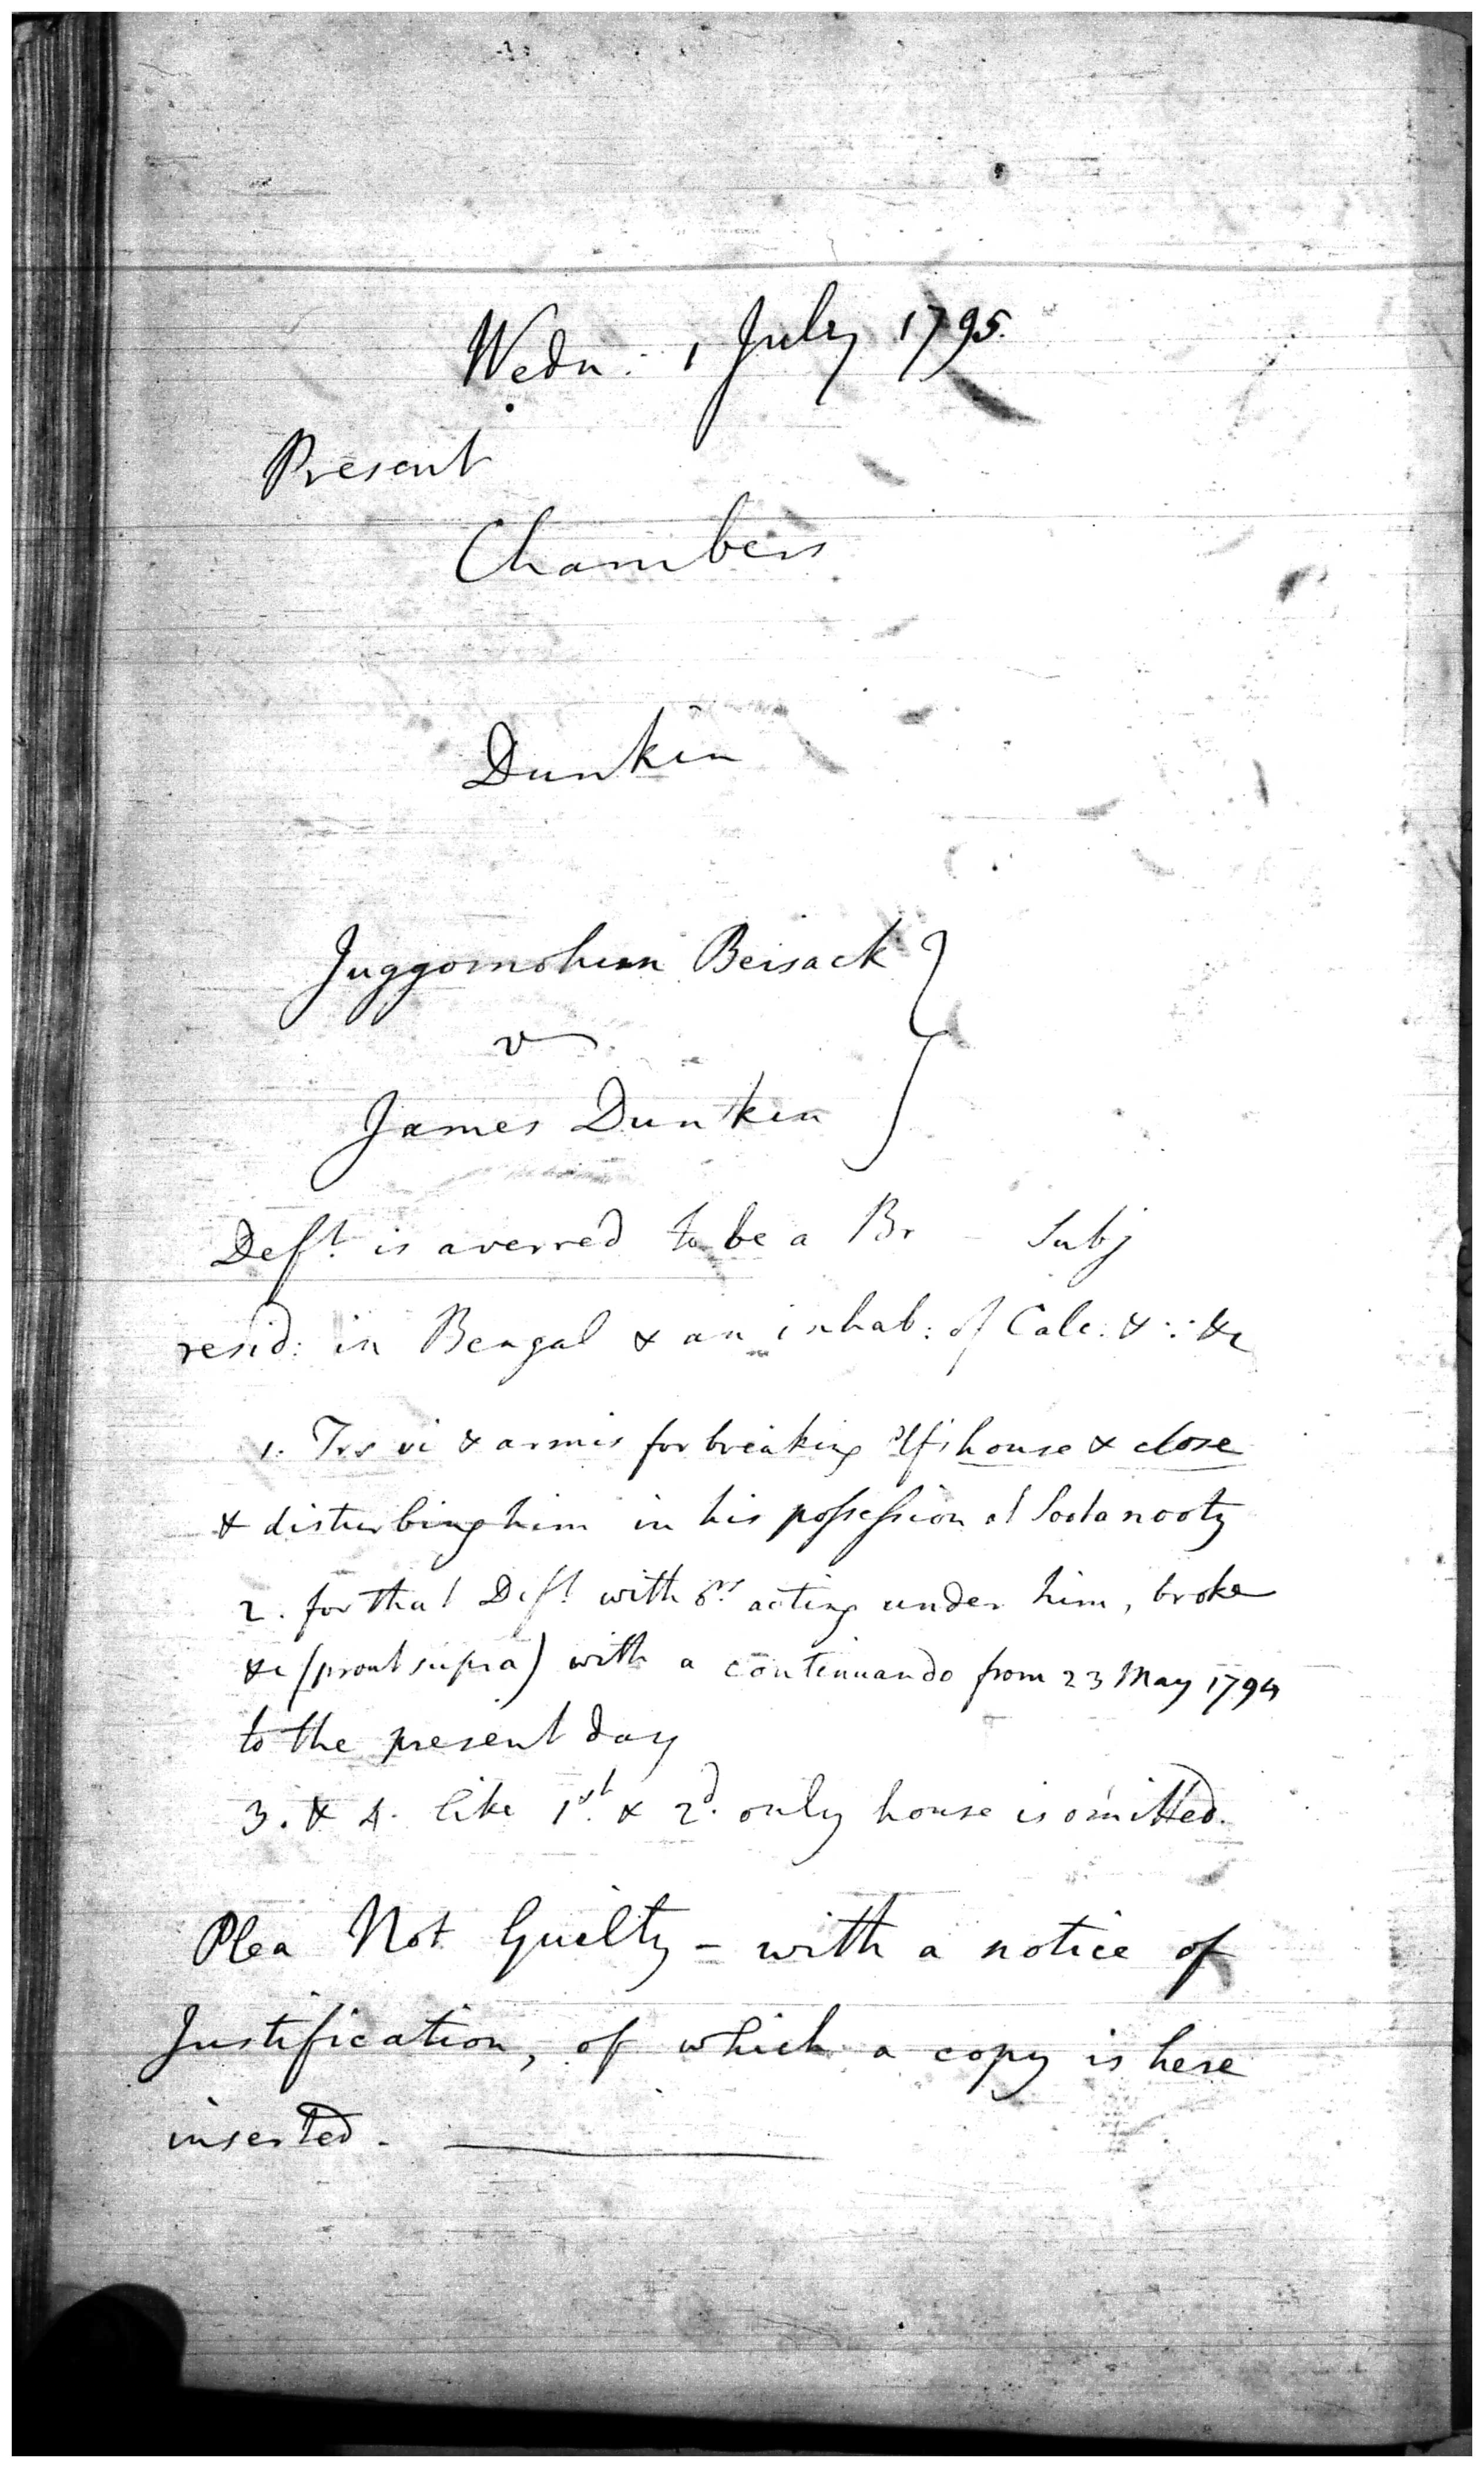 Wedn: 1 July 1795.
Present
Chambers
Dunkin
Juggomohun Beisack
v
James Dunkin
Deft. is averred to be a Br - Subj
resid: in Bengal & an inhab: of Calc: & ∵ &c
1. Trs vi & armis for breaking Plfs house & close
& disturbing him in his possession at Sootanooty
2. for that Deft. with ors acting under him, broke
&c (prout supra) with a continuando from 23 May 1794
to the present day
3. & 4. like 1st. & 2d. only house is omitted.
Plea Not Guilty - with a notice of
Justification, of which a copy is here
inserted.